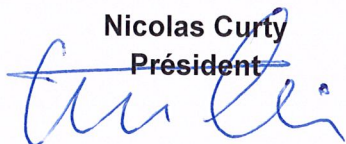 Nicolas Curty
Président